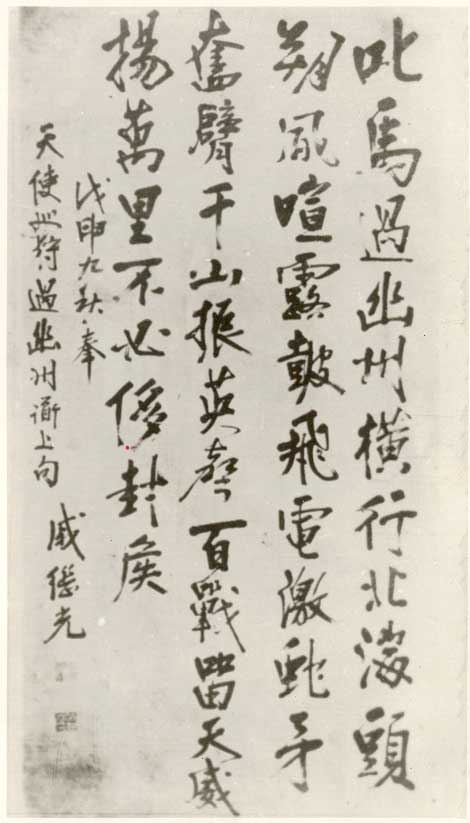 叱馬過幽州橫行北海頭
朔風喧露鼓飛電激虵矛
奮臂千山振英聲百戰留天威
揚萬里不必侈封侯
戊申九秋奉
天使巡狩過幽州道上句
戚繼光